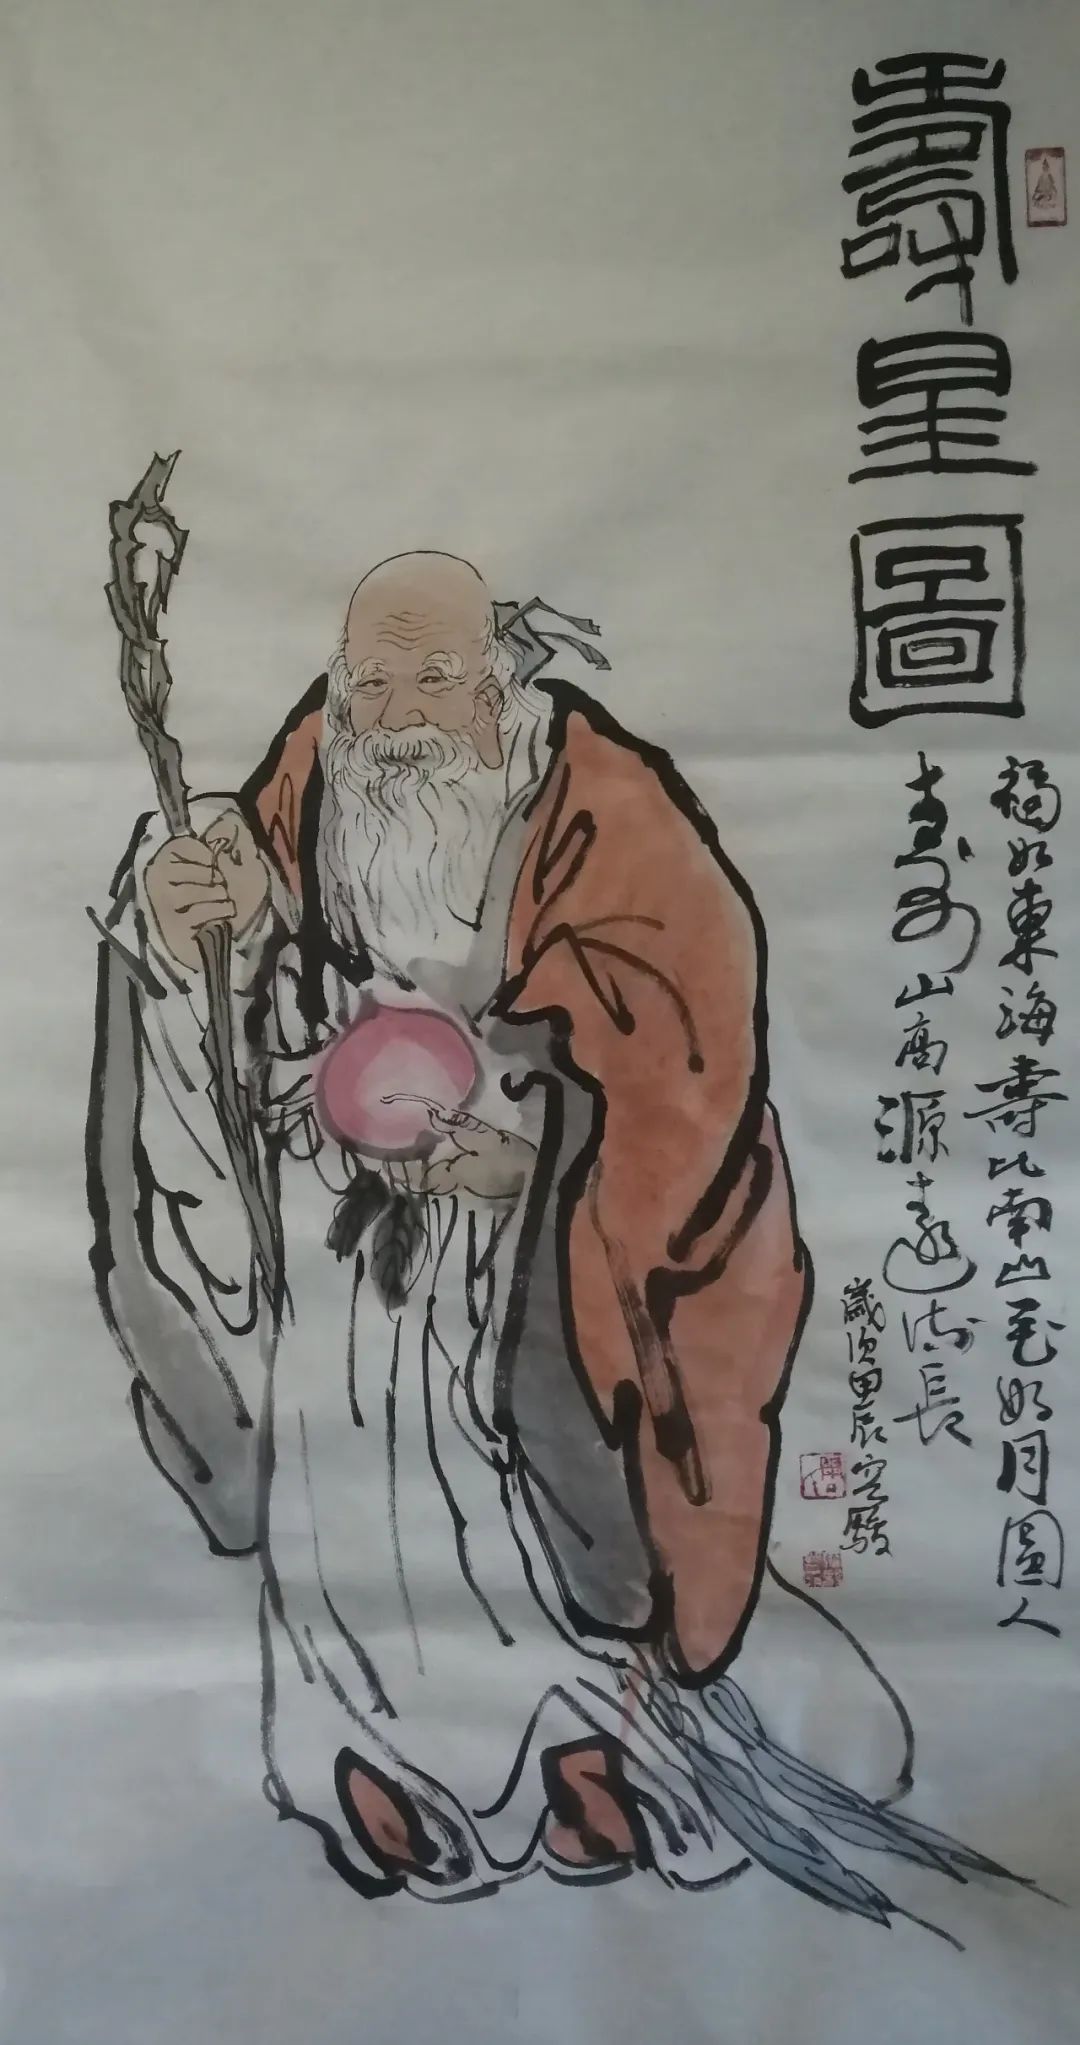 壽星圖
福如東海壽比南山花好月圓人
壽山高源遠流長
歲次甲辰